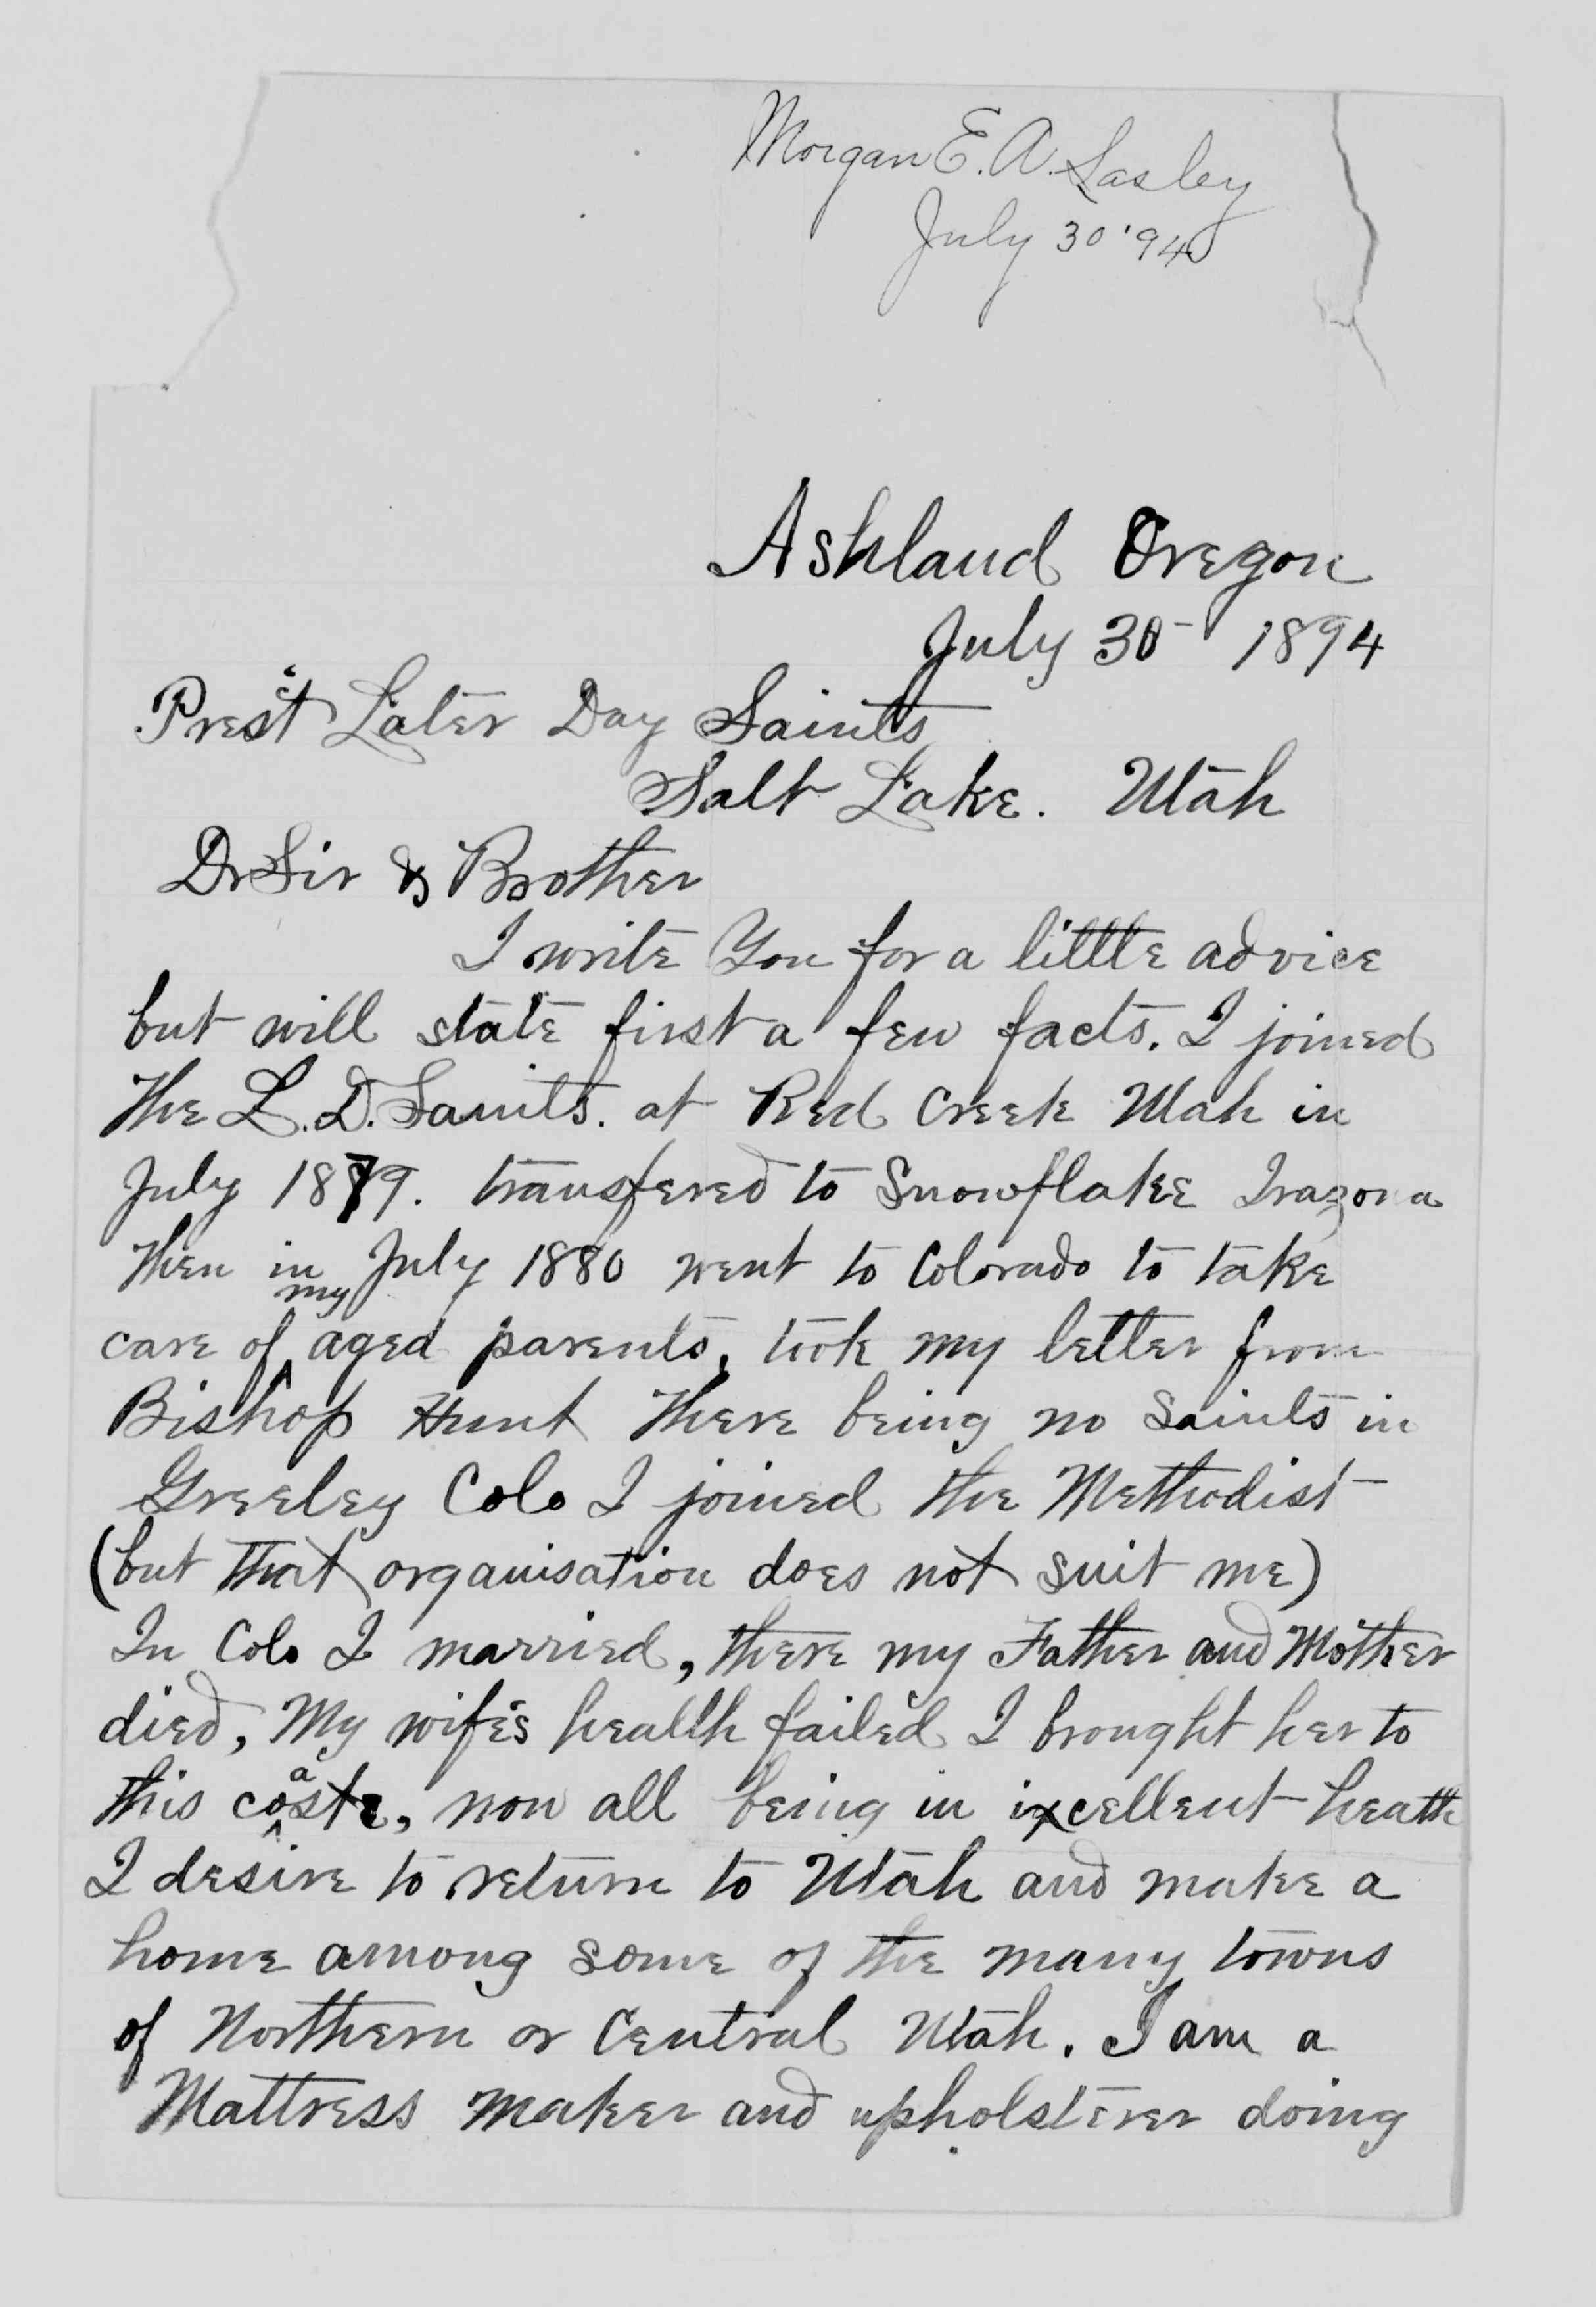 Morgan E. A. Lasley
July 30 '94
Ashland Oregon
July 30 - 1894
Prest Later Day Saints
Salt Lake. Utah
Dr Sir & Brother
I write You for a little advice
but will state first a few facts. I joined
the L. D. Saints. at Red Creek Utah in
July 1879. transfered to Snowflake Irazona
then in July 1880 went to Colorado to take
care of my aged parents, took my letter from
Bishop Hunt there being no Saints in
Greeley Colo I joined the Methodist
(but that organisation does not suit me)
In Colo I married, there my Father and Mother
died, My wife's health failed I brought her to
this coast, now all being in excellent heath
I desire to return to Utah and make a
home among some of the many towns
of Northern or Central Utah. I am a
Mattress maker and upholsterer doing